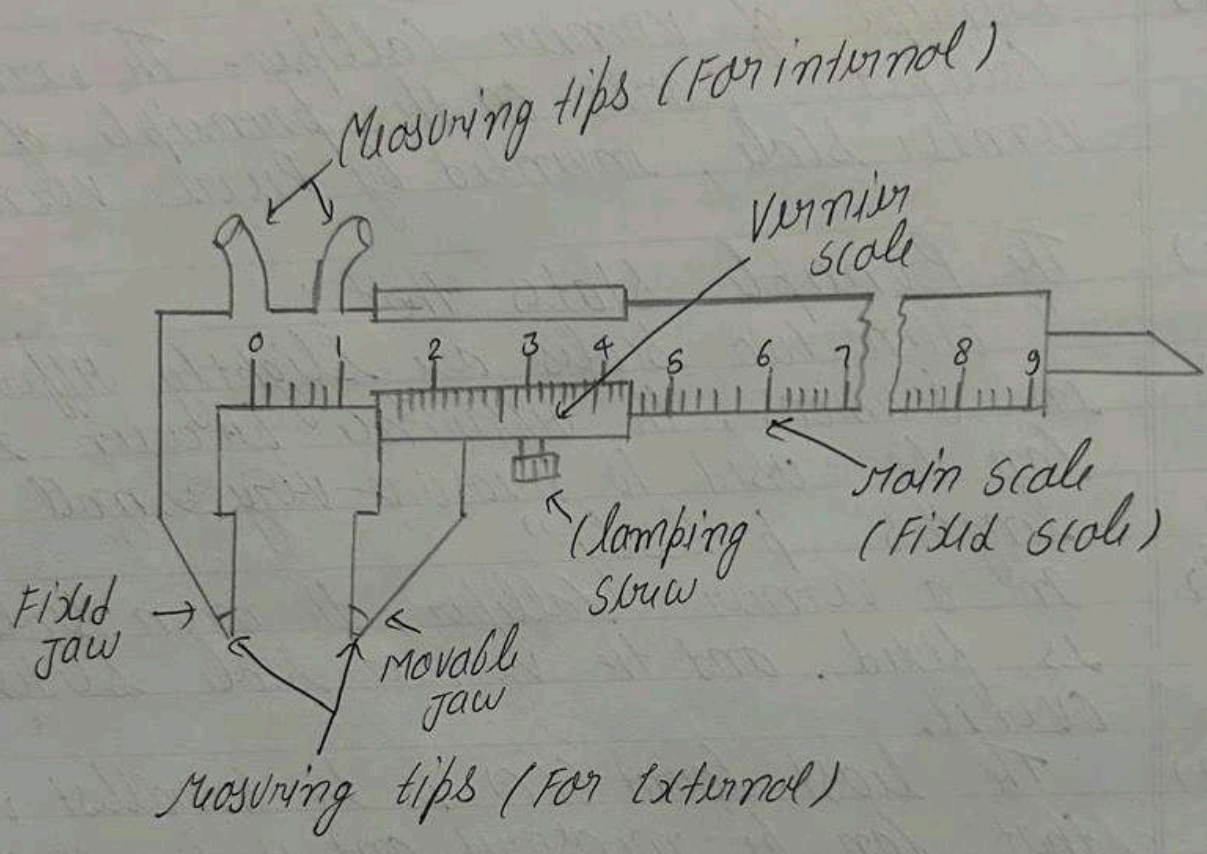 Measuring tips (For internal)
Vernier
scale
0 1 2 3 4 5 6 7 8 9
Main scale
(Fixed scale)
Clamping
screw
Fixed
Jaw
Movable
Jaw
Measuring tips (For External)